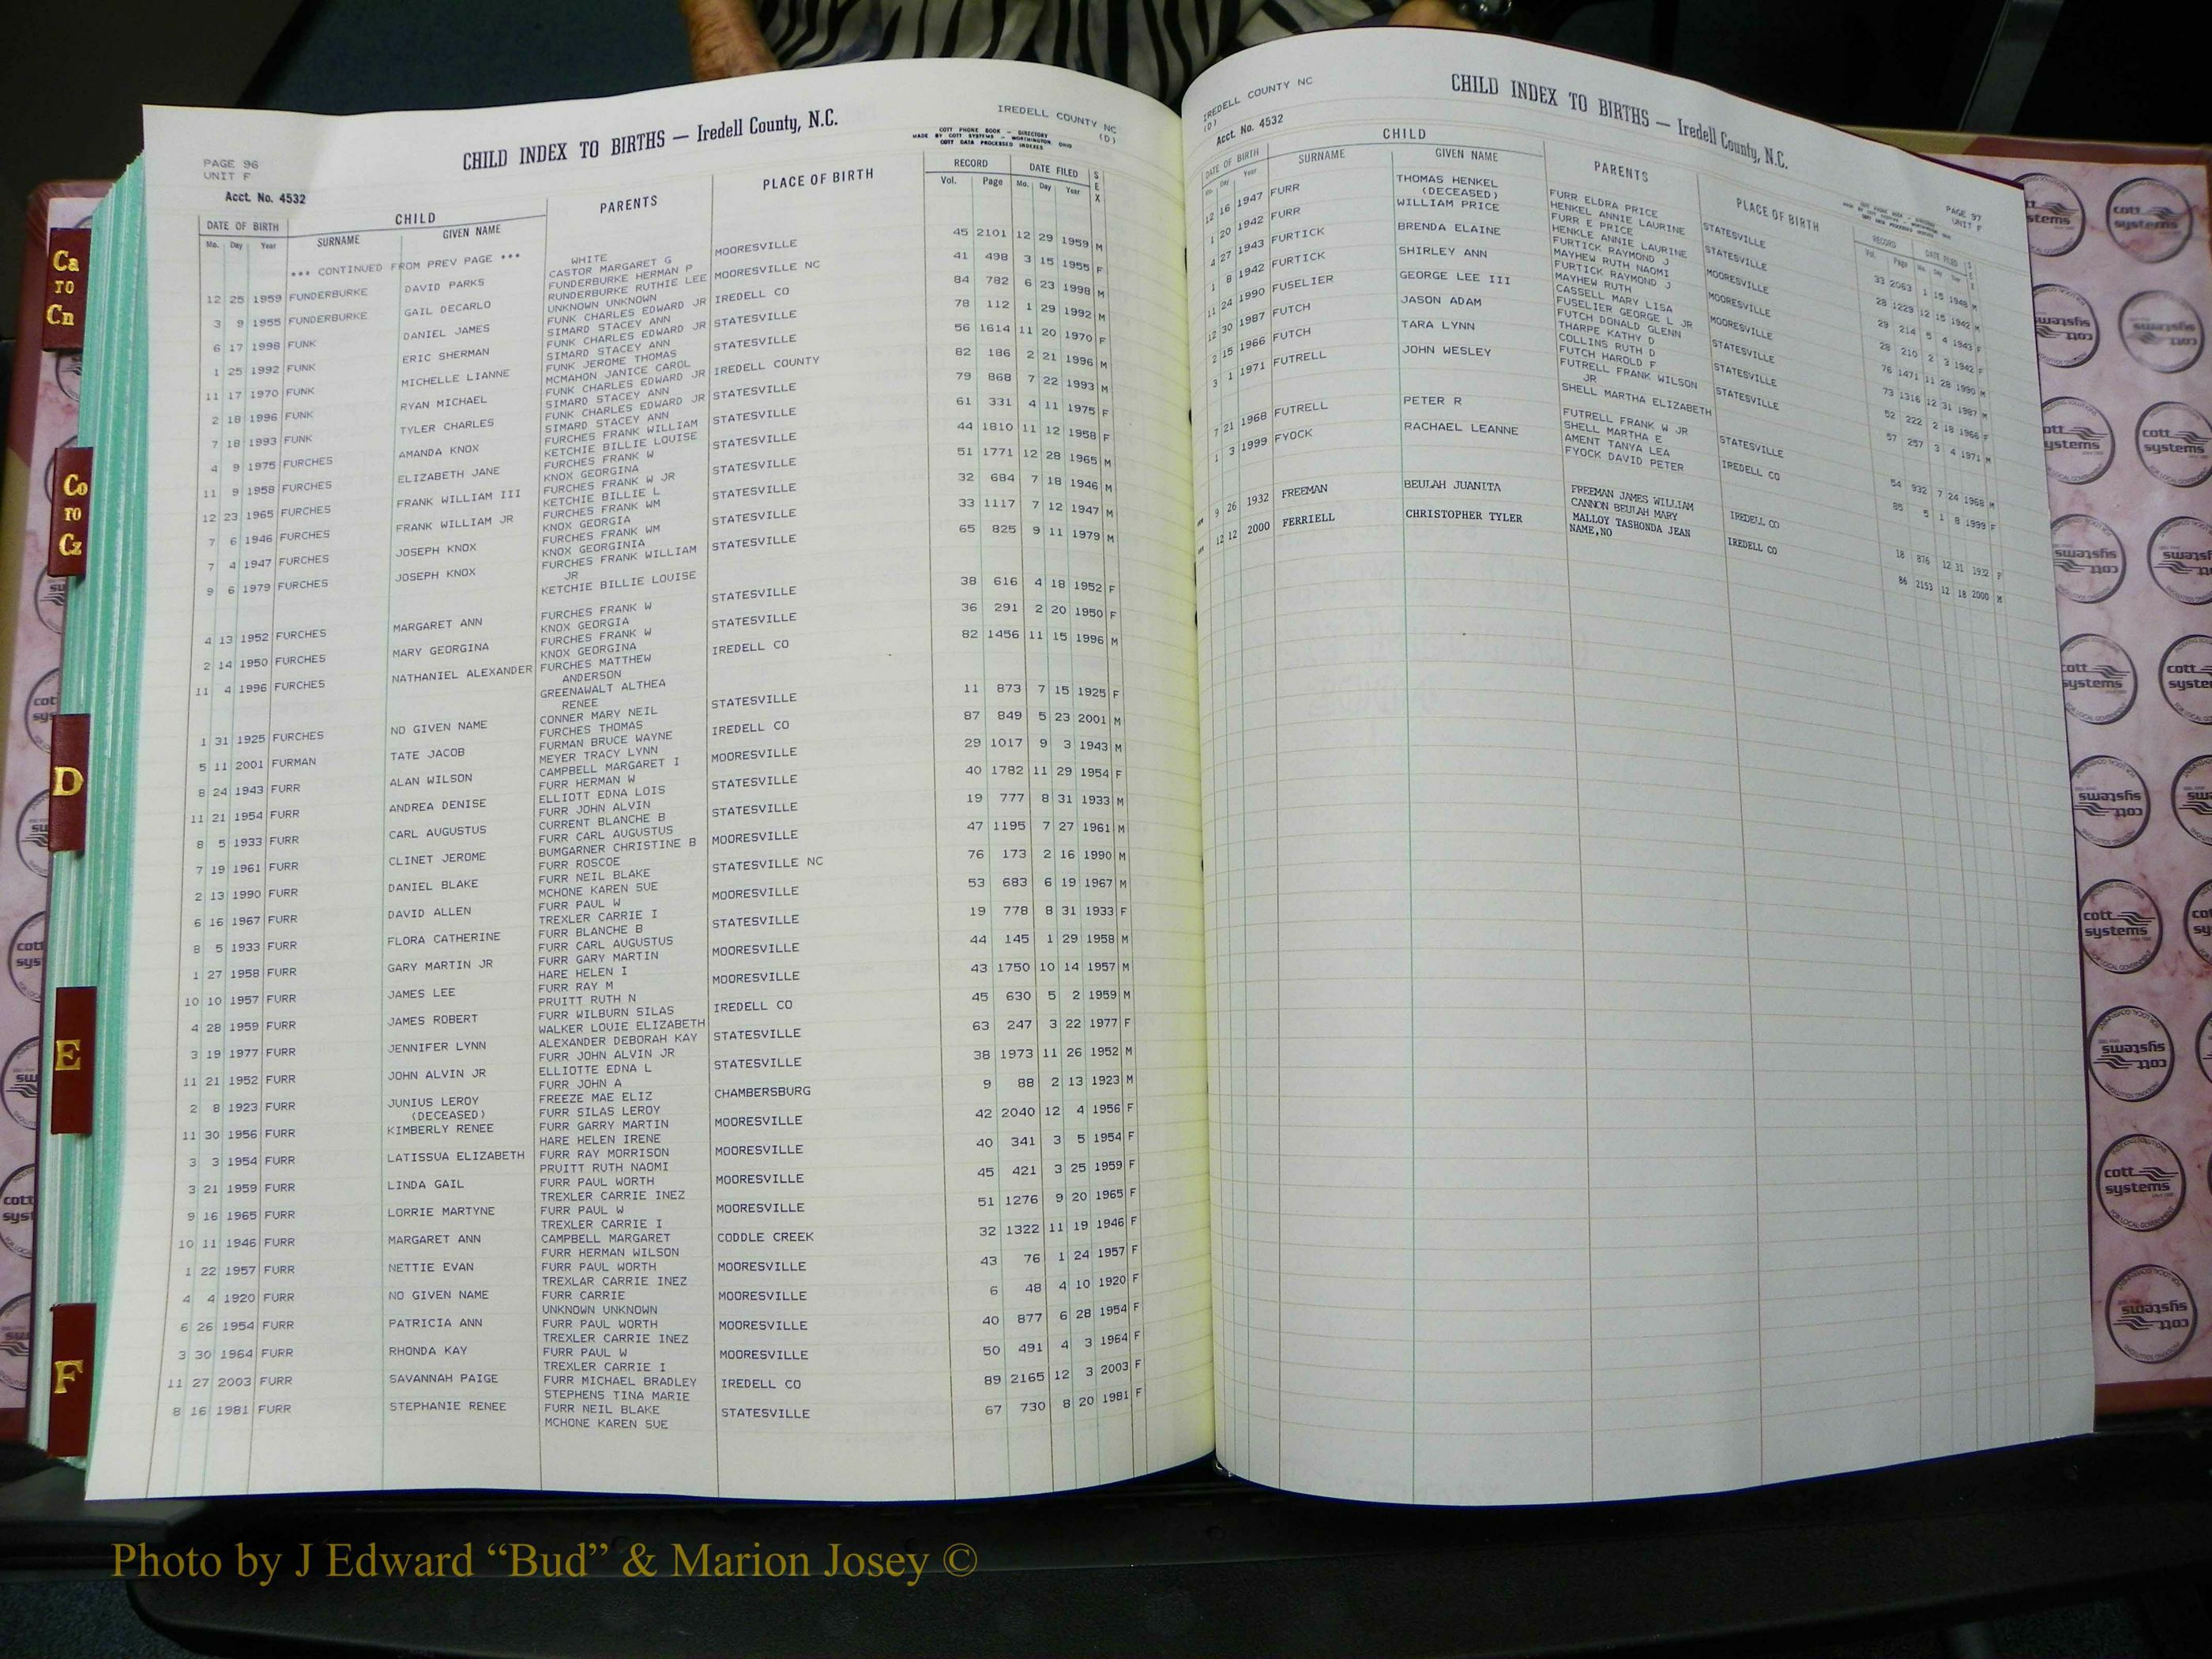 Ca
TO
Cn
Co
TO
Cz
D
E
F
PAGE 96
UNIT F
Acct. No. 4532
CHILD INDEX TO BIRTHS — Iredell County, N.C.
IREDELL COUNTY NC
(D)
COTT PHONE BOOK — DIRECTORY
MADE BY COTT SYSTEMS — WORTHINGTON, OHIO
COTT DATA PROCESSED INDEXES
DATE OF BIRTH CHILD PARENTS PLACE OF BIRTH RECORD DATE FILED SEX
Mo. Day Year SURNAME GIVEN NAME Vol. Page Mo. Day Year
*** CONTINUED FROM PREV PAGE ***
WHITE
12 25 1959 FUNDERBURKE DAVID PARKS CASTOR MARGARET G MOORESVILLE 45 2101 12 29 1959 M
FUNDERBURKE HERMAN P
3 9 1955 FUNDERBURKE GAIL DECARLO RUNDERBURKE RUTHIE LEE MOORESVILLE NC 41 498 3 15 1955 F
UNKNOWN UNKNOWN
6 17 1998 FUNK DANIEL JAMES FUNK CHARLES EDWARD JR IREDELL CO 84 782 6 23 1998 M
SIMARD STACEY ANN
1 25 1992 FUNK ERIC SHERMAN FUNK CHARLES EDWARD JR STATESVILLE 78 112 1 29 1992 M
SIMARD STACEY ANN
11 17 1970 FUNK MICHELLE LIANNE FUNK JEROME THOMAS STATESVILLE 56 1614 11 20 1970 F
MCMAHON JANICE CAROL
2 18 1996 FUNK RYAN MICHAEL FUNK CHARLES EDWARD JR IREDELL COUNTY 82 186 2 21 1996 M
SIMARD STACEY ANN
7 18 1993 FUNK TYLER CHARLES FUNK CHARLES EDWARD JR STATESVILLE 79 868 7 22 1993 M
SIMARD STACEY ANN
4 9 1975 FURCHES AMANDA KNOX FURCHES FRANK WILLIAM STATESVILLE 61 331 4 11 1975 F
KETCHIE BILLIE LOUISE
11 9 1958 FURCHES ELIZABETH JANE FURCHES FRANK W STATESVILLE 44 1810 11 12 1958 F
KNOX GEORGINA
12 23 1965 FURCHES FRANK WILLIAM III FURCHES FRANK W JR STATESVILLE 51 1771 12 28 1965 M
KETCHIE BILLIE L
7 6 1946 FURCHES FRANK WILLIAM JR FURCHES FRANK WM STATESVILLE 32 684 7 18 1946 M
KNOX GEORGIA
7 4 1947 FURCHES JOSEPH KNOX FURCHES FRANK WM STATESVILLE 33 1117 7 12 1947 M
KNOX GEORGINIA
9 6 1979 FURCHES JOSEPH KNOX FURCHES FRANK WILLIAM STATESVILLE 65 825 9 11 1979 M
JR
KETCHIE BILLIE LOUISE
4 13 1952 FURCHES MARGARET ANN FURCHES FRANK W STATESVILLE 38 616 4 18 1952 F
KNOX GEORGIA
2 14 1950 FURCHES MARY GEORGINA FURCHES FRANK W STATESVILLE 36 291 2 20 1950 F
KNOX GEORGINA
11 4 1996 FURCHES NATHANIEL ALEXANDER FURCHES MATTHEW IREDELL CO 82 1456 11 15 1996 M
ANDERSON
GREENAWALT ALTHEA
RENEE
1 31 1925 FURCHES NO GIVEN NAME CONNER MARY NEIL STATESVILLE 11 873 7 15 1925 F
FURCHES THOMAS
5 11 2001 FURMAN TATE JACOB FURMAN BRUCE WAYNE IREDELL CO 87 849 5 23 2001 M
MEYER TRACY LYNN
8 24 1943 FURR ALAN WILSON CAMPBELL MARGARET I MOORESVILLE 29 1017 9 3 1943 M
FURR HERMAN W
11 21 1954 FURR ANDREA DENISE ELLIOTT EDNA LOIS STATESVILLE 40 1782 11 29 1954 F
FURR JOHN ALVIN
8 5 1933 FURR CARL AUGUSTUS CURRENT BLANCHE B STATESVILLE 19 777 8 31 1933 M
FURR CARL AUGUSTUS
7 19 1961 FURR CLINET JEROME BUMGARNER CHRISTINE B MOORESVILLE 47 1195 7 27 1961 M
FURR ROSCOE
2 13 1990 FURR DANIEL BLAKE FURR NEIL BLAKE STATESVILLE NC 76 173 2 16 1990 M
MCHONE KAREN SUE
6 16 1967 FURR DAVID ALLEN FURR PAUL W MOORESVILLE 53 683 6 19 1967 M
TREXLER CARRIE I
8 5 1933 FURR FLORA CATHERINE FURR BLANCHE B STATESVILLE 19 778 8 31 1933 F
FURR CARL AUGUSTUS
1 27 1958 FURR GARY MARTIN JR FURR GARY MARTIN MOORESVILLE 44 145 1 29 1958 M
HARE HELEN I
10 10 1957 FURR JAMES LEE FURR RAY M MOORESVILLE 43 1750 10 14 1957 M
PRUITT RUTH N
4 28 1959 FURR JAMES ROBERT FURR WILBURN SILAS IREDELL CO 45 630 5 2 1959 M
WALKER LOUIE ELIZABETH
3 19 1977 FURR JENNIFER LYNN ALEXANDER DEBORAH KAY STATESVILLE 63 247 3 22 1977 F
FURR JOHN ALVIN JR
11 21 1952 FURR JOHN ALVIN JR ELLIOTTE EDNA L STATESVILLE 38 1973 11 26 1952 M
FURR JOHN A
2 8 1923 FURR JUNIUS LEROY FREEZE MAE ELIZ CHAMBERSBURG 9 88 2 13 1923 M
(DECEASED) FURR SILAS LEROY
11 30 1956 FURR KIMBERLY RENEE FURR GARRY MARTIN MOORESVILLE 42 2040 12 4 1956 F
HARE HELEN IRENE
3 3 1954 FURR LATISSUA ELIZABETH FURR RAY MORRISON MOORESVILLE 40 341 3 5 1954 F
PRUITT RUTH NAOMI
3 21 1959 FURR LINDA GAIL FURR PAUL WORTH MOORESVILLE 45 421 3 25 1959 F
TREXLER CARRIE INEZ
9 16 1965 FURR LORRIE MARTYNE FURR PAUL W MOORESVILLE 51 1276 9 20 1965 F
TREXLER CARRIE I
10 11 1946 FURR MARGARET ANN CAMPBELL MARGARET CODDLE CREEK 32 1322 11 19 1946 F
FURR HERMAN WILSON
1 22 1957 FURR NETTIE EVAN FURR PAUL WORTH MOORESVILLE 43 76 1 24 1957 F
TREXLAR CARRIE INEZ
4 4 1920 FURR NO GIVEN NAME FURR CARRIE MOORESVILLE 6 48 4 10 1920 F
UNKNOWN UNKNOWN
6 26 1954 FURR PATRICIA ANN FURR PAUL WORTH MOORESVILLE 40 877 6 28 1954 F
TREXLER CARRIE INEZ
3 30 1964 FURR RHONDA KAY FURR PAUL W MOORESVILLE 50 491 4 3 1964 F
TREXLER CARRIE I
11 27 2003 FURR SAVANNAH PAIGE FURR MICHAEL BRADLEY IREDELL CO 89 2165 12 3 2003 F
STEPHENS TINA MARIE
8 16 1981 FURR STEPHANIE RENEE FURR NEIL BLAKE STATESVILLE 67 730 8 20 1981 F
MCHONE KAREN SUE
IREDELL COUNTY NC
(D)
Acct. No. 4532
CHILD INDEX TO BIRTHS — Iredell County, N.C.
PAGE 97
UNIT F
DATE OF BIRTH CHILD PARENTS PLACE OF BIRTH RECORD DATE FILED SEX
Mo. Day Year SURNAME GIVEN NAME Vol. Page Mo. Day Year
12 16 1947 FURR THOMAS HENKEL FURR ELDRA PRICE STATESVILLE 33 2063 1 15 1948 M
(DECEASED) HENKEL ANNIE LAURINE
1 20 1942 FURR WILLIAM PRICE FURR E PRICE STATESVILLE 28 1229 12 15 1942 M
HENKLE ANNIE LAURINE
4 27 1943 FURTICK BRENDA ELAINE FURTICK RAYMOND J MOORESVILLE 29 214 5 4 1943 F
MAYHEW RUTH NAOMI
1 8 1942 FURTICK SHIRLEY ANN FURTICK RAYMOND J MOORESVILLE 28 210 2 3 1942 F
MAYHEW RUTH
11 24 1990 FUSELIER GEORGE LEE III CASSELL MARY LISA MOORESVILLE 76 1471 11 28 1990 M
FUSELIER GEORGE L JR
12 30 1987 FUTCH JASON ADAM FUTCH DONALD GLENN STATESVILLE 73 1316 12 31 1987 M
THARPE KATHY D
2 15 1966 FUTCH TARA LYNN COLLINS RUTH D STATESVILLE 52 222 2 18 1966 F
FUTCH HAROLD F
3 1 1971 FUTRELL JOHN WESLEY FUTRELL FRANK WILSON STATESVILLE 57 257 3 4 1971 M
JR
SHELL MARTHA ELIZABETH
7 21 1968 FUTRELL PETER R FUTRELL FRANK W JR STATESVILLE 54 932 7 24 1968 M
SHELL MARTHA E
1 3 1999 FYOCK RACHAEL LEANNE AMENT TANYA LEA IREDELL CO 85 5 1 8 1999 F
FYOCK DAVID PETER
9 26 1932 FREEMAN BEULAH JUANITA FREEMAN JAMES WILLIAM IREDELL CO 18 876 12 31 1932 F
CANNON BEULAH MARY
12 12 2000 FERRIELL CHRISTOPHER TYLER MALLOY TASHONDA JEAN IREDELL CO 86 2153 12 18 2000 M
NAME,NO
cott
systems
Photo by J Edward “Bud” & Marion Josey ©